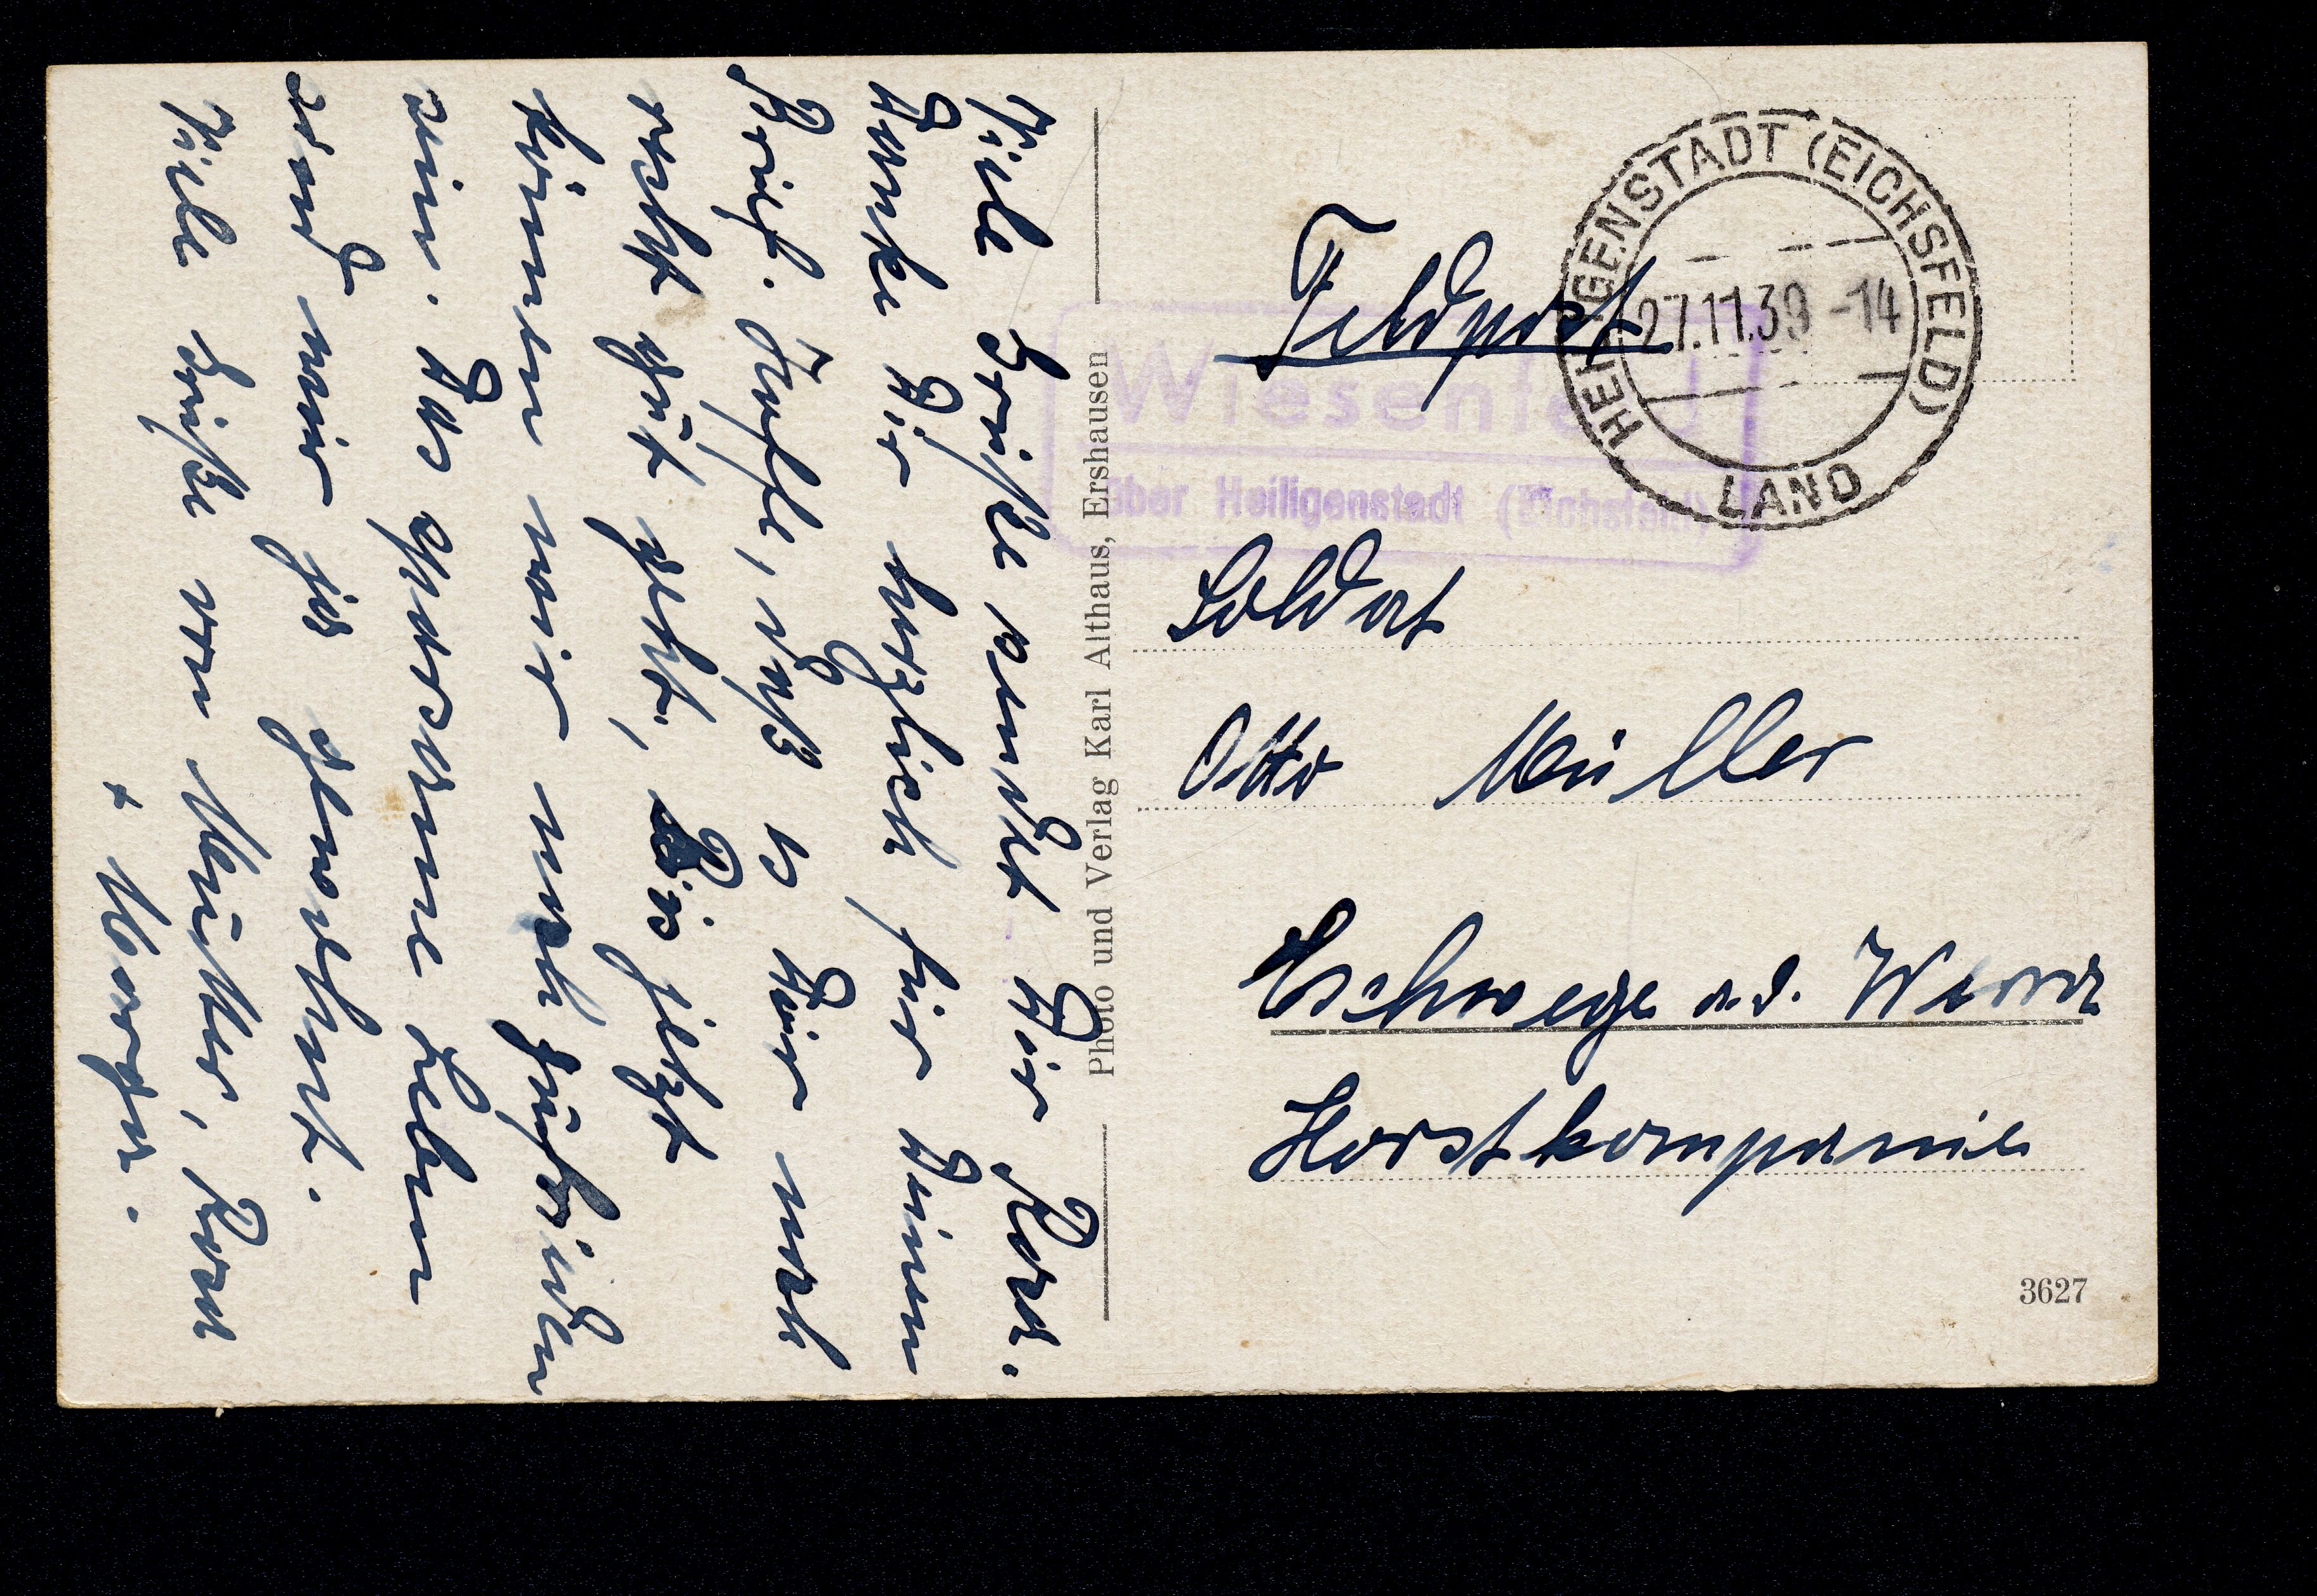 Viele Grüße sendet Dir Rosa.
Danke Dir herzlich für Deinen
Brief. Hoffe, daß es Dir noch
recht gut geht, Bis jetzt
können wir noch zufrieden
sein. Das sparsame Leben
sind wir ja gewohnt.
Viele Grüße von Mutter, Rosa
+
Photo und Verlag Karl Althaus, Ershausen
Feldpost
HEILIGENSTADT (EICHSFELD)
27.11.39 -14
LAND
Wiesenfeld
über Heiligenstadt (Eichsfeld)
Soldat
Otto Müller
Eschwege a.d. Werra
Horstkompanie
3627